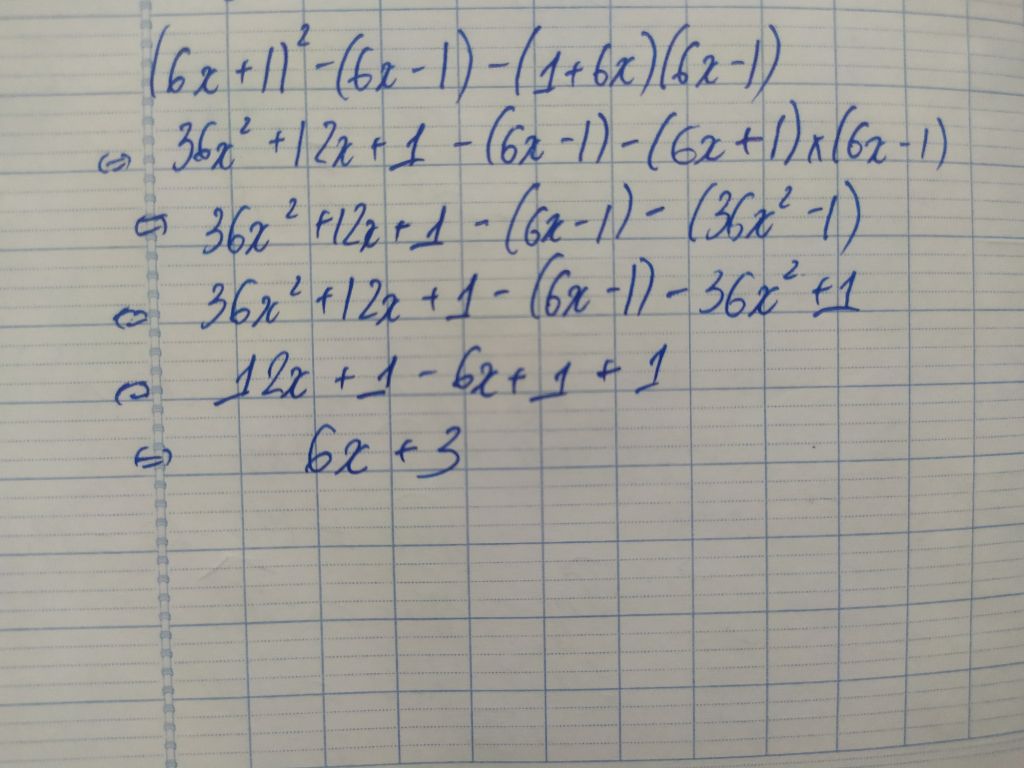 (6x+1)² - (6x-1) - (1+6x)(6x-1)
⇔ 36x² + 12x + 1 - (6x-1) - (6x+1)x(6x-1)
⇔ 36x² + 12x + 1 - (6x-1) - (36x² - 1)
⇔ 36x² + 12x + 1 - (6x-1) - 36x² + 1
⇔ 12x + 1 - 6x + 1 + 1
⇔ 6x + 3